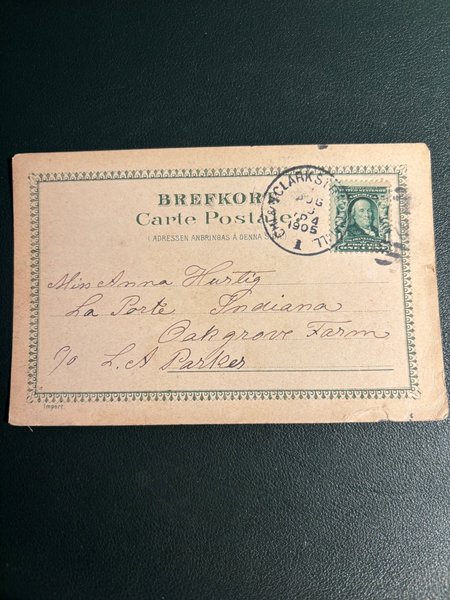 BREFKOR
Carte Postale
(ADRESSEN ANBRINGAS Å DENNA S
CHI. & CLARKS
AUG
1905
1
ILL
ONE CENT
Miss Anna Hurtig
La Porte Indiana
Oakgrove Farm
c/o L. A Parker
Import.